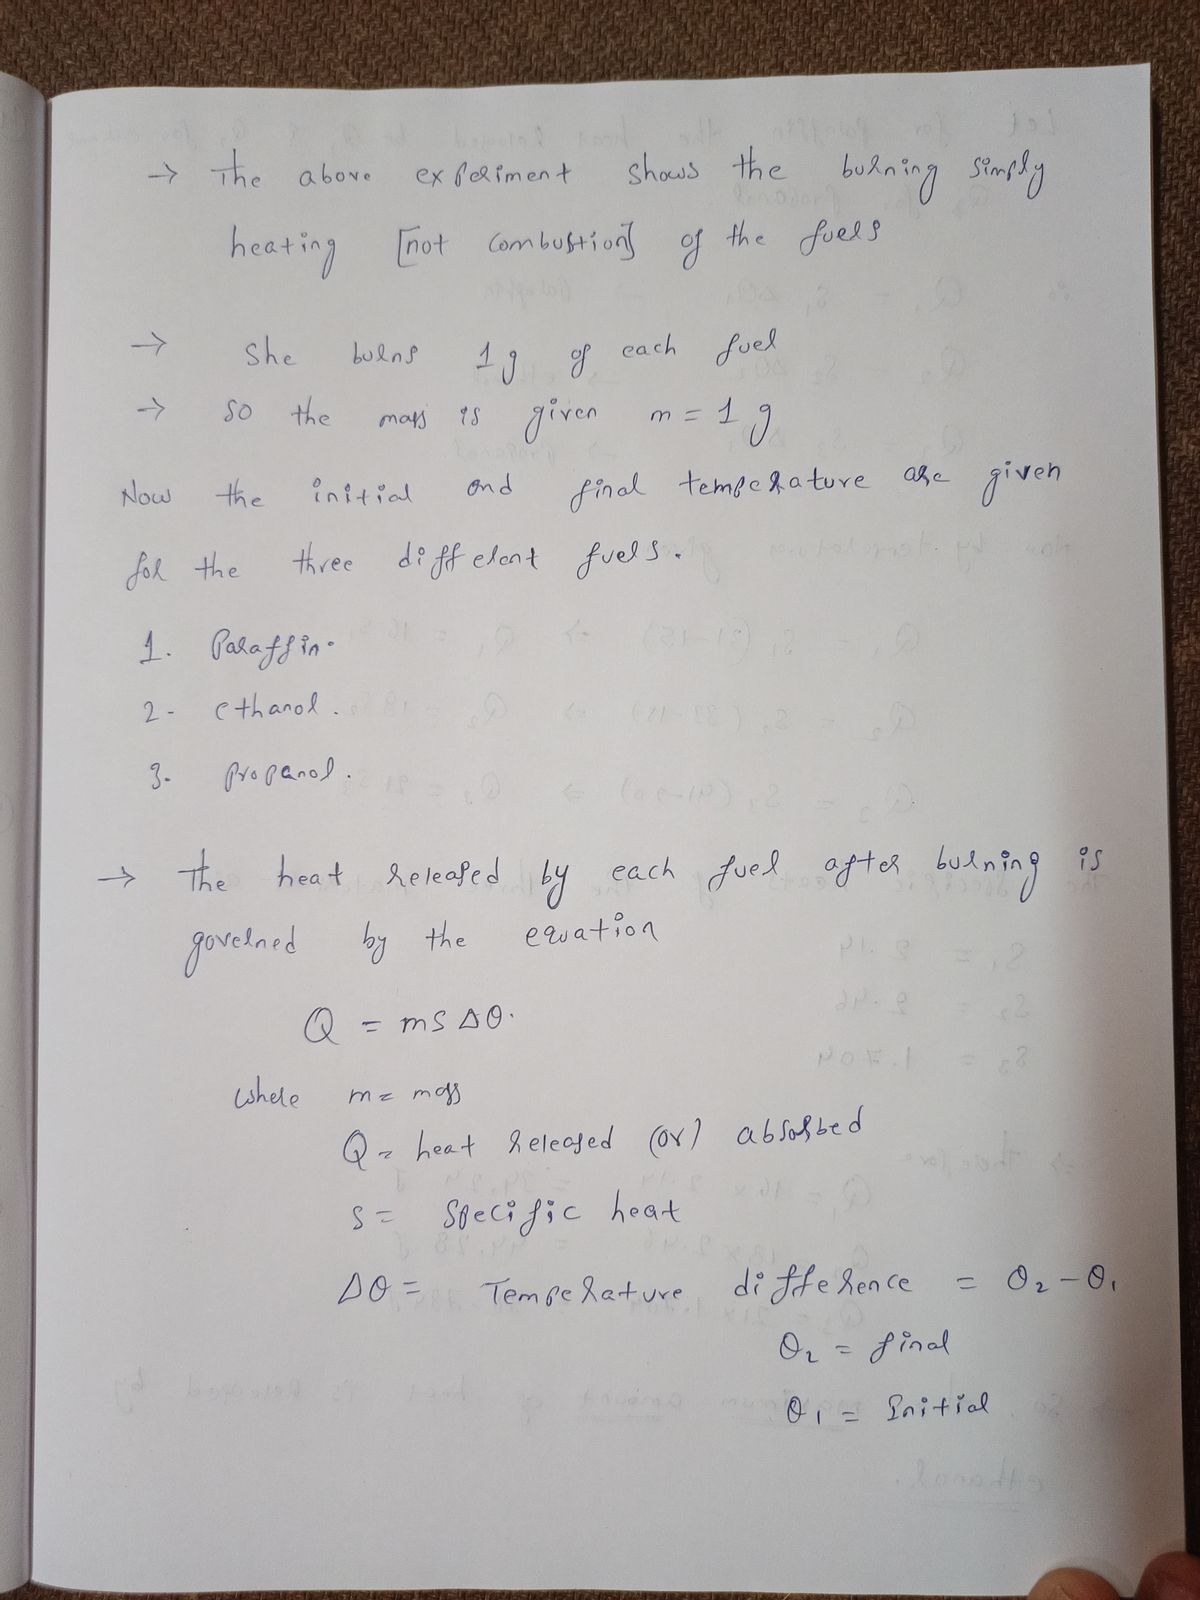 → The above experiment shows the burning simply
heating [not combustion] of the fuels
→ She burns 1 g of each fuel
→ so the mass is given m = 1 g
Now the initial and final temperature are given
for the three different fuels.
1. Paraffin.
2- ethanol.
3. propanol.
→ The heat released by each fuel after burning is
governed by the equation
Q = ms Δθ.
where m = mass
Q = heat released (or) absorbed
s = specific heat
Δθ = Temperature difference = θ₂ - θ₁
θ₂ = final
θ₁ = Initial